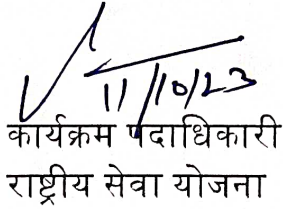 11/10/23
कार्यक्रम पदाधिकारी
राष्ट्रीय सेवा योजना